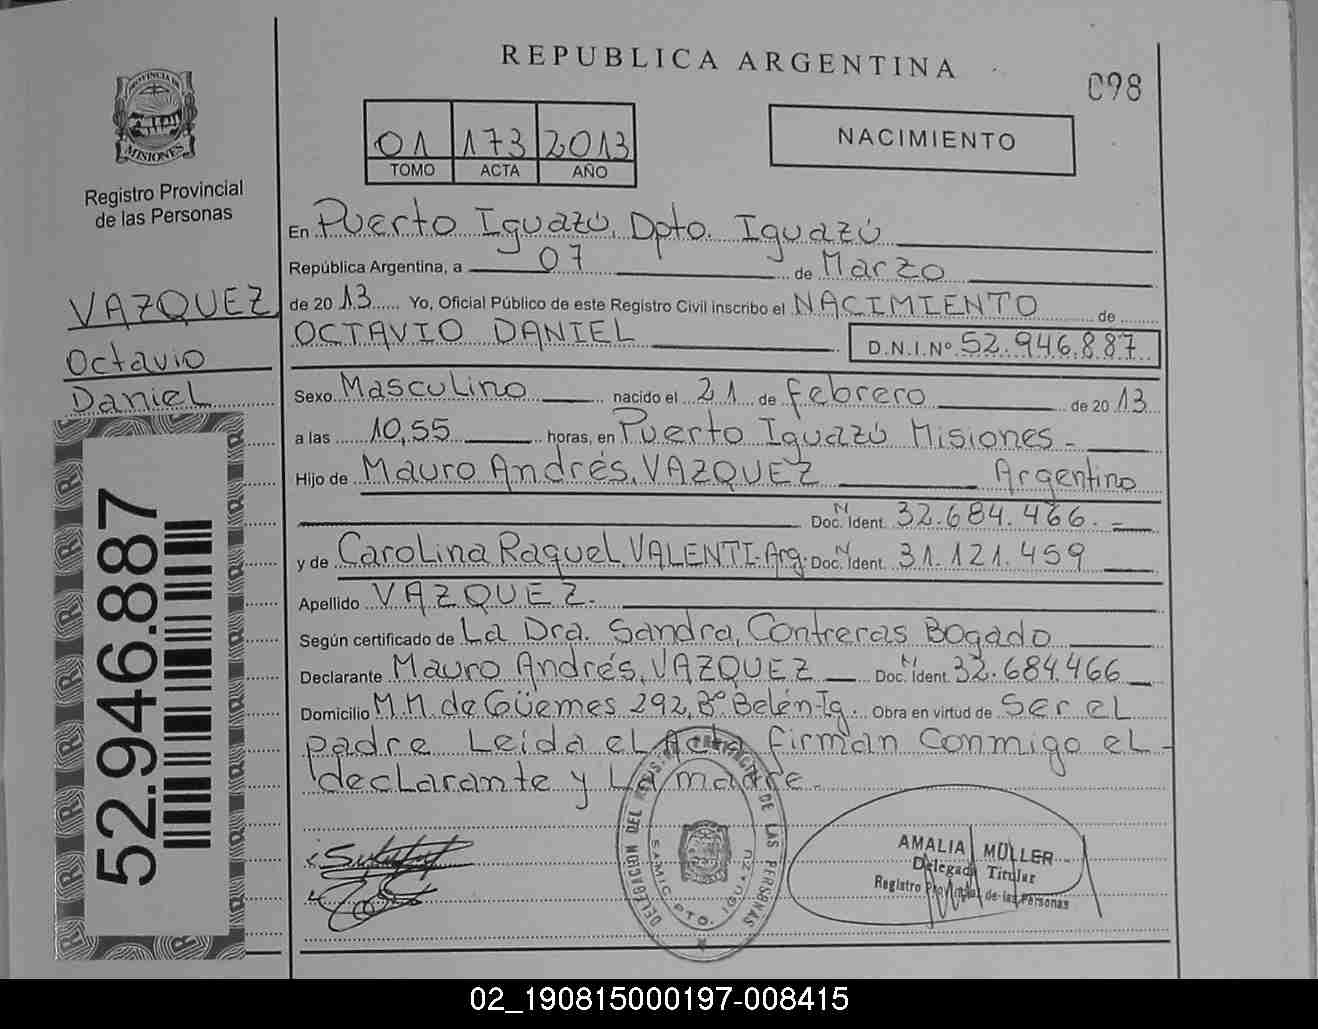 REPUBLICA ARGENTINA
098
PROVINCIA DE
MISIONES
Registro Provincial
de las Personas
01 173 2013
TOMO ACTA AÑO
NACIMIENTO
En Puerto Iguazú, Dpto. Iguazú
República Argentina, a 07 de Marzo
de 2013 Yo, Oficial Público de este Registro Civil inscribo el NACIMIENTO de
OCTAVIO DANIEL D.N.I.Nº 52.946.887
VAZQUEZ
Octavio
Daniel
Sexo Masculino nacido el 21 de febrero de 2013
a las 10,55 horas, en Puerto Iguazú Misiones -
Hijo de Mauro Andrés, VAZQUEZ Argentino
Doc. N Ident. 32.684.466.
y de Carolina Raquel VALENTI-Arg. Doc. N Ident. 31.121.459
Apellido VAZQUEZ.
Según certificado de La Dra. Sandra, Contreras Bogado
Declarante Mauro Andrés, VAZQUEZ Doc. N Ident. 32.684.466
Domicilio M.M. de Güemes 292, Bº Belén-Ig. Obra en virtud de Ser el
padre Leida el Acta, firman conmigo el -
declarante y La madre.
52.946.887
DELEGACION DEL REGISTRO PROVINCIAL DE LAS PERSONAS
PTO. IGUAZU
AMALIA MÜLLER
Delegada Titular
Registro Provincial de las Personas
02_190815000197-008415